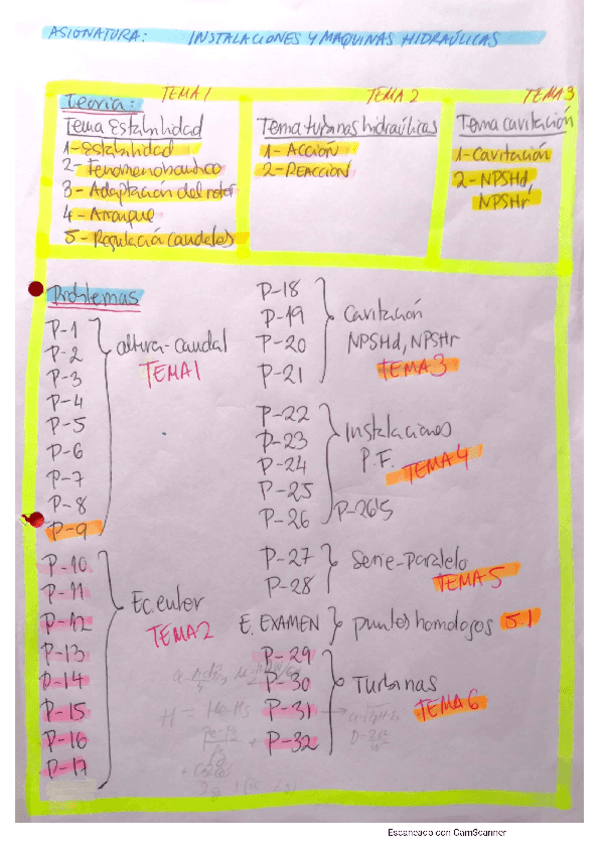 ASIGNATURA: INSTALACIONES Y MAQUINAS HIDRAÚLICAS
Teoría: TEMA 1
Tema Estabilidad
1- Estabilidad
2- Fenomeno bombeo
3- Adaptación del rotor
4- Arranque
5- Regulación caudales
TEMA 2
Tema turbinas hidraúlicas
1- ACCIÓN
2- REACCION
TEMA 3
Tema cavitación
1- Cavitación
2- NPSHd,
NPSHr
Problemas
P-1
P-2
P-3
P-4
P-5
P-6
P-7
P-8
P-9
altura-caudal
TEMA 1
P-10
P-11
P-12
P-13
P-14
P-15
P-16
P-17
Ec. euler
TEMA 2
P-18
P-19
P-20
P-21
Cavitación
NPSHd, NPSHr
TEMA 3
P-22
P-23
P-24
P-25
P-26 P-26'5
Instalaciones
P.F. TEMA 4
P-27
P-28
Serie-Paralelo
TEMA 5
E. EXAMEN } puntos homologos 5.1
P-29
P-30
P-31
P-32
Turbinas
TEMA 6
Escaneado con CamScanner